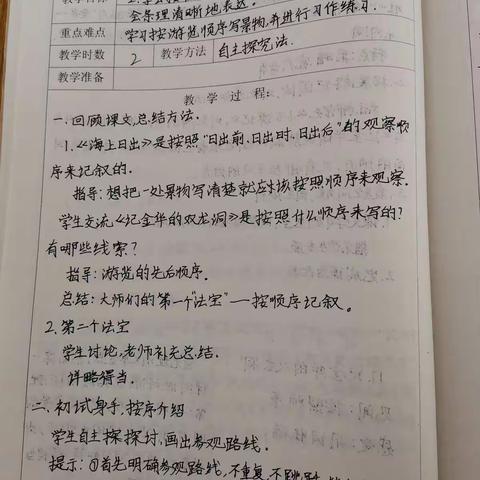 教学目标
会条理清晰地表达。
重点难点 学习按游览顺序写景物,并进行习作练习.
教学时数 2 教学方法 自主探究法.
教学准备
教 学 过 程:
一.回顾课文,总结方法.
1.《海上日出》是按照"日出前、日出时、日出后"的观察顺
序来记叙的.
指导:想把一处景物写清楚就应该按照顺序来观察.
学生交流《记金华的双龙洞》是按照什么顺序来写的?
有哪些线索?
指导:游览的先后顺序.
总结:大师们的第一个"法宝"—按顺序记叙。
2.第二个法宝
学生讨论,老师补充总结.
详略得当.
二、初试身手,按序介绍
学生自主探探讨,画出参观路线.
提示:①首先明确参观路线,不重复,不